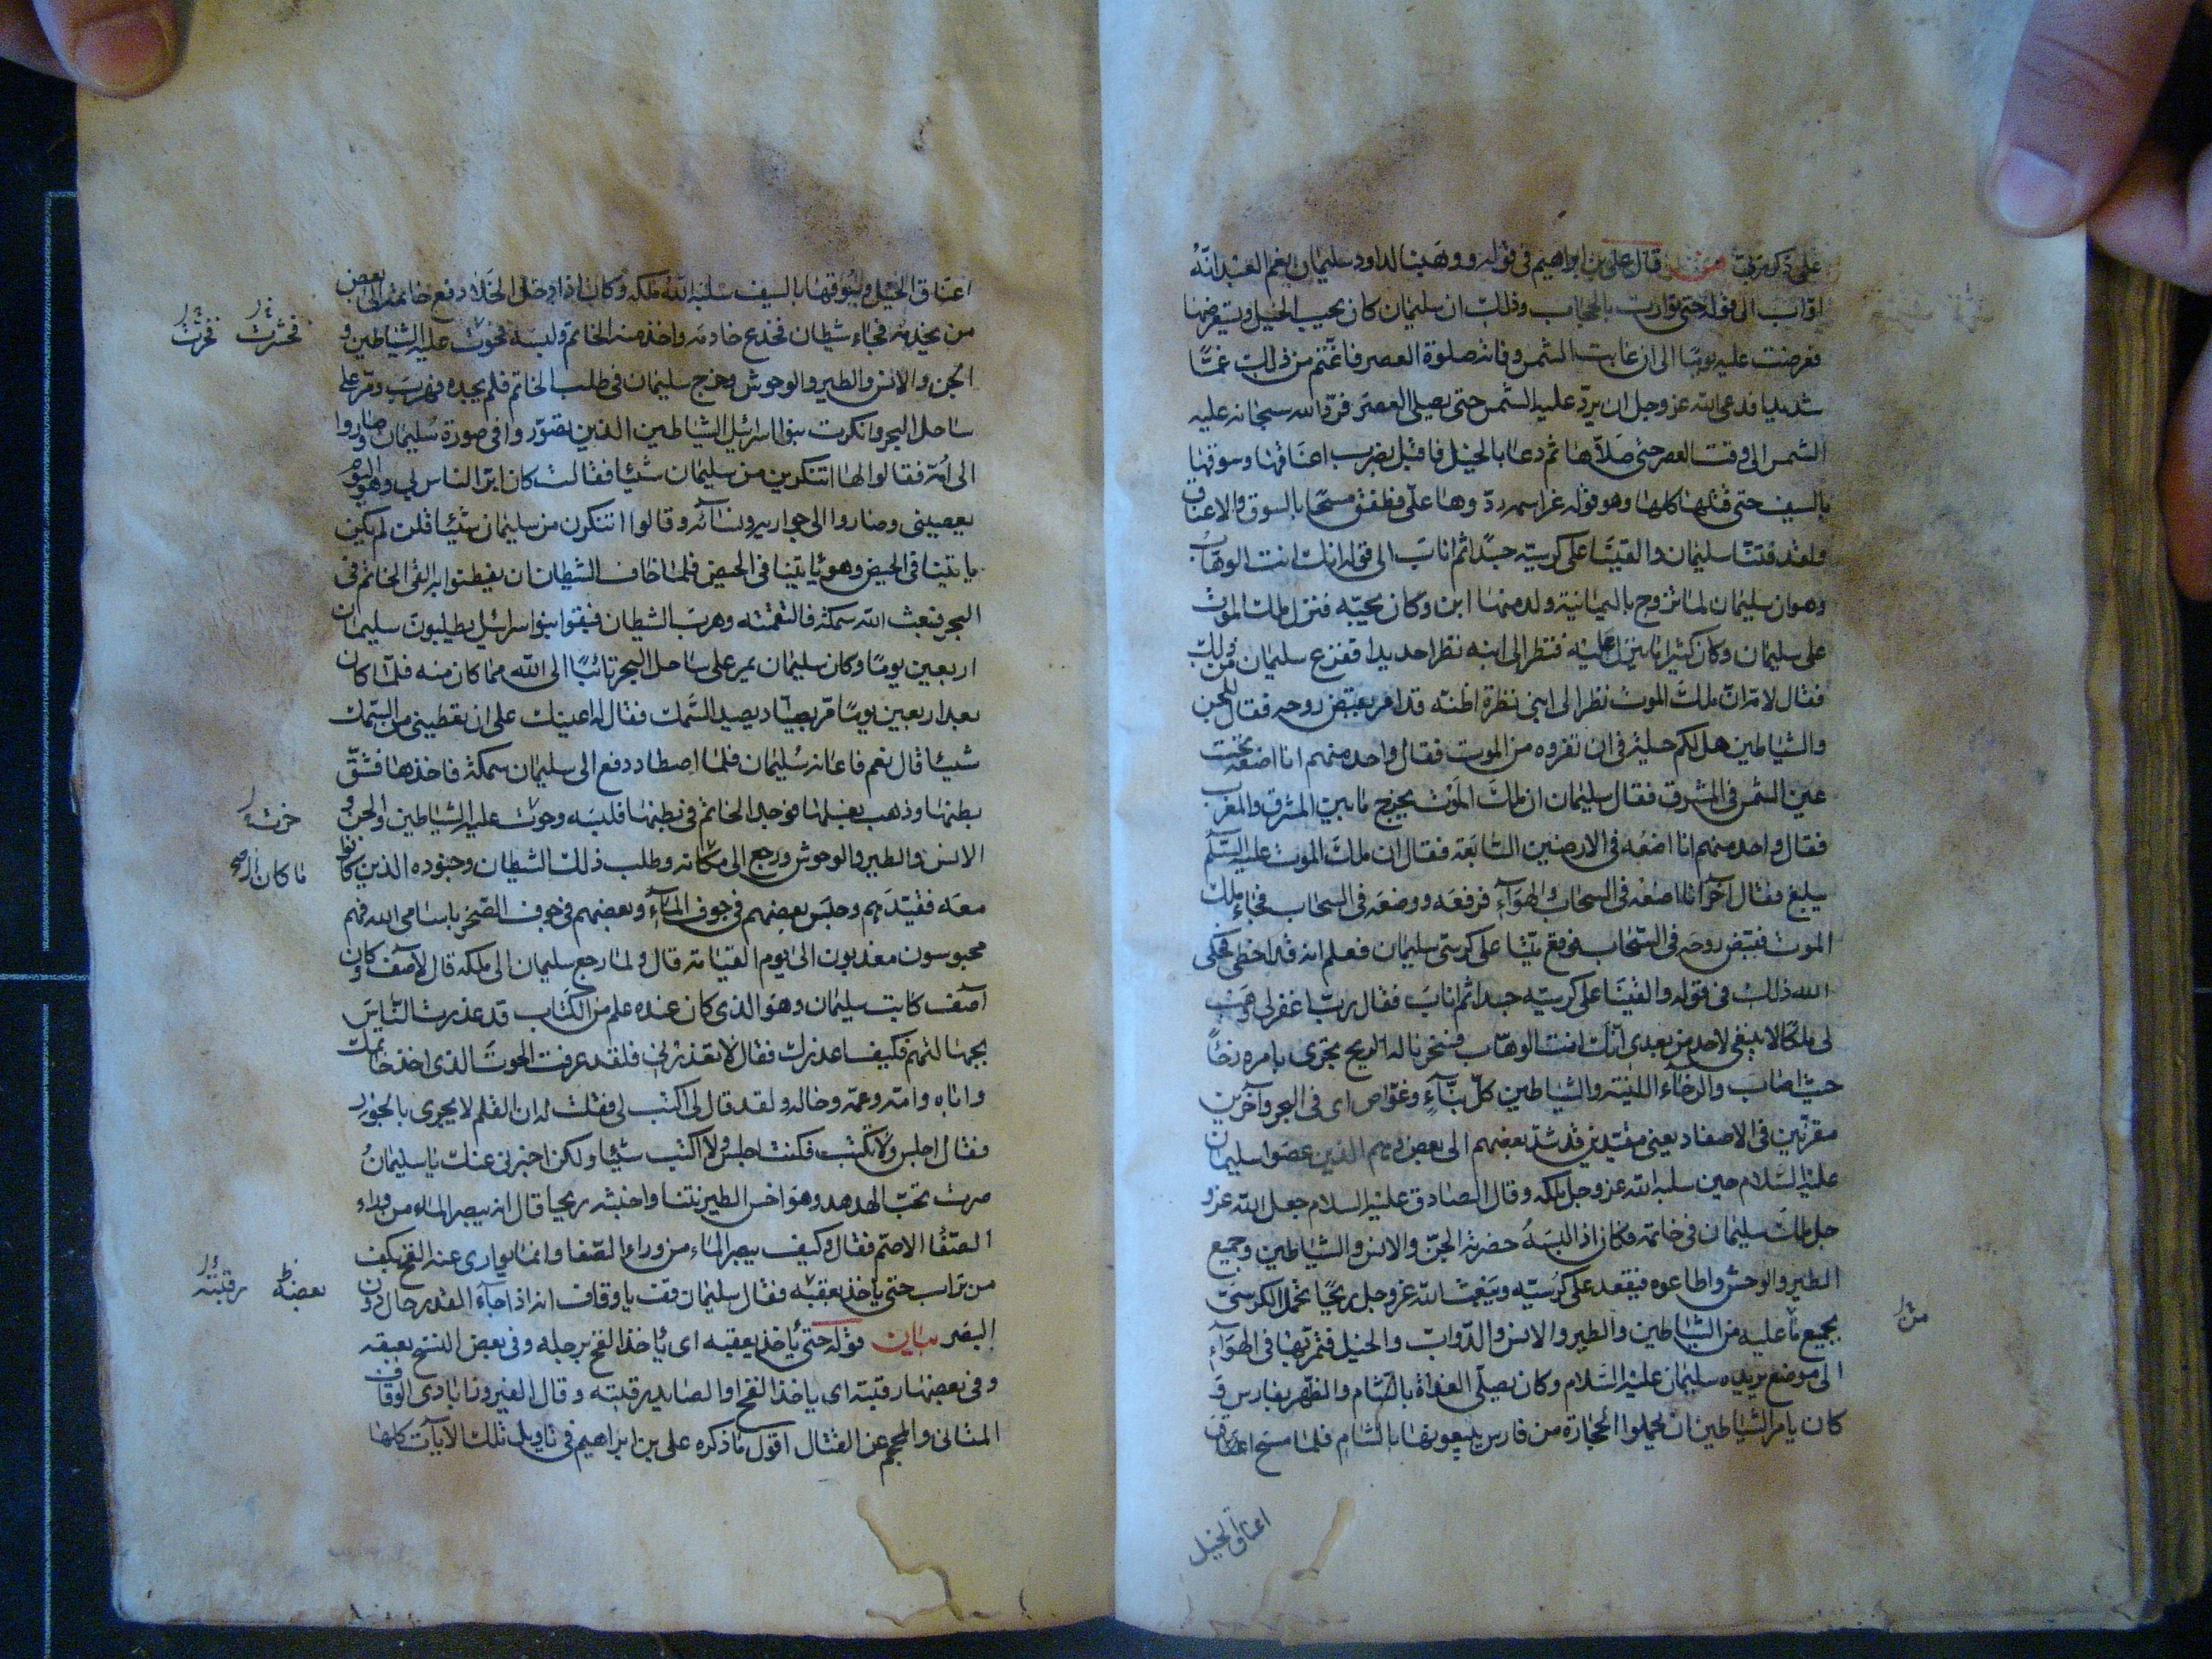 على ذكر ربى قال على بن ابراهيم فى قوله ووهبنا لداود سليمان نعم العبد انه
اوّاب الى قوله حتى توارت بالحجاب وذلك ان سليمان كان يحب الخيل ويستعرضها
فعرضت عليه يوما الى ان غابت الشمس وفاته صلوة العصر فاغتمّ من ذلك غمّا
شديدا فدعى الله عز وجل ان يردّ عليه الشمس حتى يصلى العصر فردّ الله سبحانه عليه
الشمس الى وقت العصر حتى صَلّاها ثم دعا بالخيل فاقبل يضرب اعناقها وسوقها
بالسيف حتى قتلها كلها وهو قوله عز اسمه ردّوها علىّ فطفق مسحًا بالسوق والاعناق
ولقد فتنّا سليمان والقينا على كرسيّه جسدًا ثم اناب الى قوله انك انت الوهّاب
وهو ان سليمان لما تزوج باليمانية ولد منها ابن وكان يحبّه فنزل ملك الموت
على سليمان وكان كثيرا ما ينزل عليه فنظر الى ابنه نظرا حديدا ففزع سليمان من ذلك
فقال لامّه ان ملك الموت نظر الى ابنى نظرة اظنّه قد امر بقبض روحه فقال للجن
والشياطين هل لكم حيلة فى ان تفرّوه من الموت فقال واحد منهم انا اضعه تحت
عين الشمس فى المشرق فقال سليمان ان ملك الموت يخرج ما بين المشرق والمغرب
فقال واحد منهم انا اضعه فى الارضين السّابعة فقال ان ملك الموت عليه السّلم
يبلغ فقال آخر انا اضعه فى السحاب والهوآء فرفعه ووضعه فى السحاب فجاء ملك
الموت فقبض روحه فى السّحاب فوقع ميّتًا على كرسىّ سليمان فعلم انه قد اخطى فحكى
الله ذلك فى قوله والقينا على كرسيّه جسدا ثم اناب فقال ربّ اغفر لى وهب
لى ملكًا لا ينبغى لاحد من بعدى انّك انت الوهّاب فسخرنا له الريح تجرى بامره رخاءً
حيث اصاب والرخآء اللينة والشياطين كلّ بنّآءٍ وغوّاص اى فى البحر وآخرين
مقرّنين فى الاصفاد يعنى مقيّدين قد شدّ بعضهم الى بعض وهم الذين عصوا سليمان
عليه السّلام حين سلبه الله عز وجل ملكه وقال الصادق عليه السلام جعل الله عز و
جل ملك سليمان فى خاتمه فكان اذا لبسهُ حضرته الجنّ والانس والشياطين وجميع
الطير والوحش واطاعوه فيقعد على كرسيّه ويبعث الله عز وجل ريحًا تحمل الكرسىّ
بجميع ما عليه من الشياطين والطير والانس والدّوابّ والخيل فتمرّ بها فى الهوآءِ
الى موضع يريده سليمان عليه السّلام وكان يصلّى الغداة بالشام والظهر بفارس و
كان يامر الشياطين ان يحملوا الحجارة من فارس يبيعونها بالشام فلما مسح اعناق
اعناق الخيل
اعناق الخيل وسوقها بالسيف سلبه الله ملكه وكان اذا دخل الخلاء دفع خاتمه الى بعض
من يخدمه فجاء شيطان فخدع خادمه واخذ منه الخاتم ولبسه فحوت عليه الشياطين و
الجن والانس والطير والوحوش وخرج سليمان فى طلب الخاتم فلم يجده فهرب ومرّ على
ساحل البحر وانكرت بنوا اسرائيل الشياطين الذين تصوّروا فى صورة سليمان وصاروا
الى امّه فقالوا لها اتنكرين من سليمان شيئا فقالت كان ابرّ الناس بى وهو اليوم
يعصينى وصاروا الى جواريه ونسآئه وقالوا اتنكرن من سليمان شيئا قلن لم يكن
ياتينا فى الحيض وهو ياتينا فى الحيض فلما خاف الشيطان ان يفطنوا به القى الخاتم فى
البحر فبعث الله سمكة فالتقمته وهرب الشيطان فبقوا بنوا اسرائيل يطلبون سليمان
اربعين يومًا وكان سليمان يمر على ساحل البحر تائبًا الى الله مما كان منه فلمّا كان
بعد اربعين يومًا مرّ بصيّاد يصيد السّمك فقال له اعينك على ان تعطينى من السّمك
شيئا قال نعم فاعانه سُليمان فلما اصطاد دفع الى سليمان سمكة فاخذها فشقّ
بطنها وذهب يغسلها فوجد الخاتم فى بطنها فلبسه وحوت عليه الشياطين والجن و
الانس والطير والوحوش ورجع الى مكانه وطلب ذلك الشيطان وجنوده الذين كانوا
معه فقيّدهم وحبس بعضهم فى جوف المآءِ وبعضهم فى جوف الصّخر باسامى الله فهم
محبوسون معذبون الى يوم القيامة قال ولما رجع سليمان الى ملكه قال لآصف وكان
آصف كاتب سليمان وهو الذى كان عنده علم من الكتاب قد عذرت النّاسَ
بجهالتهم فكيف اعذرك فقال لا تعذرنى فلقد عرفت الحوت الذى اخذ خاتمك
واباه وامّه وعمّه وخاله ولقد قال لى اكتب لى فقلت له ان القلم لا يجرى بالجور
فقال اجلس ولا تكتب فكنت اجلس ولا اكتب شيئا ولكن اخبرنى عنك يا سليمانُ
صرت تحبّ الهدهد وهو اخسّ الطير نتنا واخبثه ريحا قال انه يبصر الماء من وراء
الصّفا الاصمّ فقال وكيف يبصر الماء من وراء الصّفا وانما يوارى عنه الفخ بكفّ
من تراب حتى ياخذ بعقبه فقال سليمان قف يا وقاف انه اذا جآء القدر حال دون
البصر بيان قوله حتى يأخذ بعقبه اى يأخذ الفخ برجله وفى بعض النسخ بعيقه
وفى بعضها رقبته اى ياخذ الفخ او الصايد برقبته وقال الفيروزابادى الوقاف
المتانى والمحجم عن القتال اقول ما ذكره على بن ابراهيم فى تاويل تلك الآيات كلها